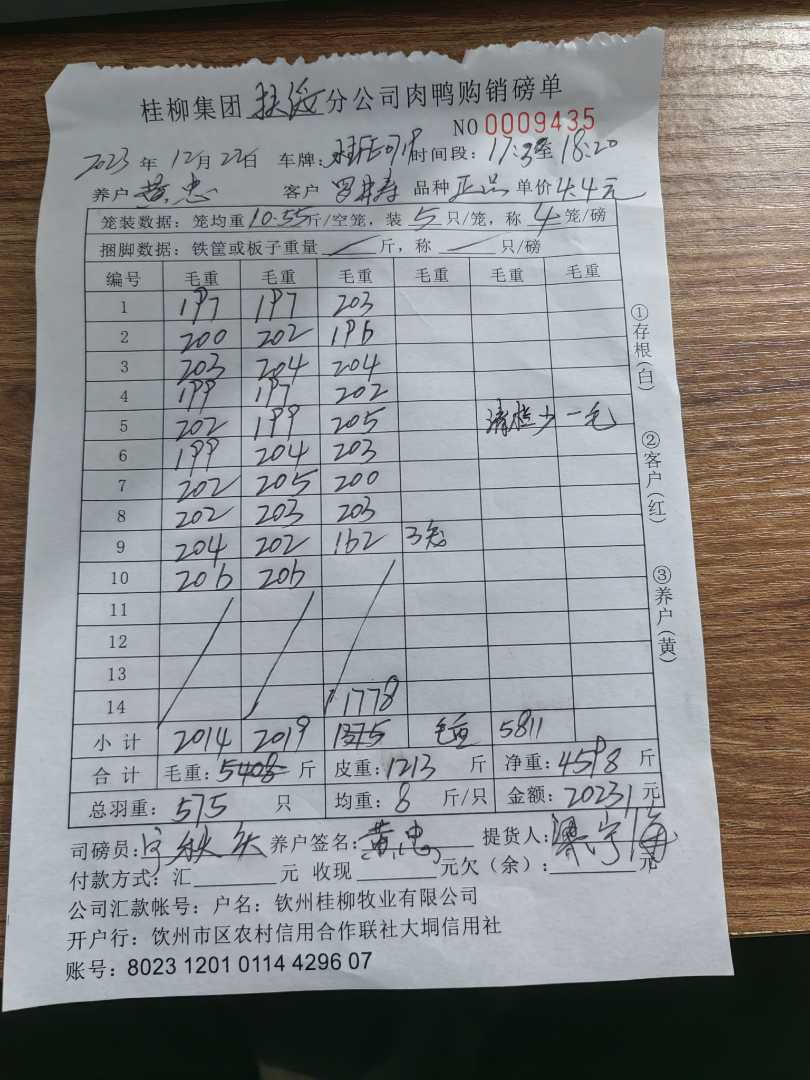 桂柳集团扶绥分公司肉鸭购销磅单
NO 0009435
2023年12月22日 车牌: 时间段:17:3至18:20
养户 黄忠 客户 品种 正品 单价 4.4元
笼装数据:笼均重10.55斤/空笼,装5只/笼,称4笼/磅
捆脚数据:铁筐或板子重量/斤,称/只/磅
编号 毛重 毛重 毛重 毛重 毛重 毛重
1 197 197 203
2 200 202 196
3 203 204 204
4 199 197 202
5 202 199 205 清槛少一毛
6 199 204 203
7 202 205 200
8 202 203 203
9 204 202 162 3笼
10 206 206
11
12
13
14 1778
小计 2014 2019 1375 毛重 5811
合计 毛重:5408斤 皮重:1213斤 净重:4598斤
总羽重:575只 均重:8斤/只 金额:20231元
司磅员: 养户签名:黄忠 提货人:
付款方式:汇____元 收现____元欠(余):____元
公司汇款帐号:户名:钦州桂柳牧业有限公司
开户行:钦州市区农村信用合作联社大垌信用社
账号:8023 1201 0114 4296 07
①存根(白)
②客户(红)
③养户(黄)